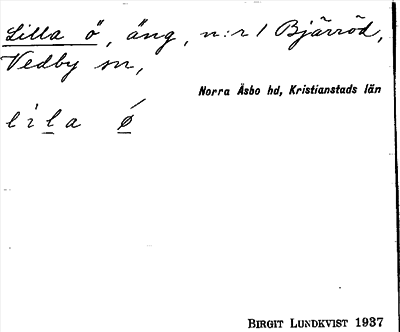 Lilla ö, äng, n:r 1 Bjärröd,
Vedby sn,
Norra Åsbo hd, Kristianstads län
lila ǿ
BIRGIT LUNDKVIST 1937